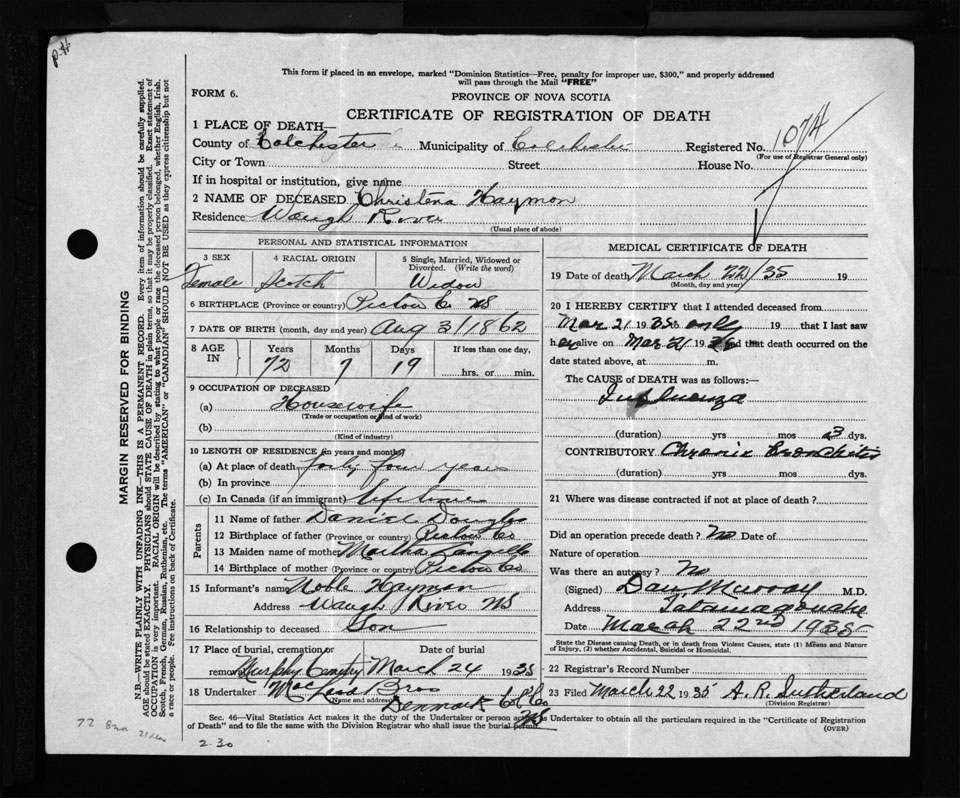 P.H
This form if placed in an envelope, marked "Dominion Statistics—Free, penalty for improper use, $300," and properly addressed
will pass through the Mail "FREE"
FORM 6.
PROVINCE OF NOVA SCOTIA
CERTIFICATE OF REGISTRATION OF DEATH
1 PLACE OF DEATH—
County of Colchester Municipality of Colchester Registered No. 1074
(For use of Registrar General only)
City or Town Street House No.
If in hospital or institution, give name
2 NAME OF DECEASED Christena Haymon
Residence Waugh River
(Usual place of abode)
PERSONAL AND STATISTICAL INFORMATION
3 SEX 4 RACIAL ORIGIN 5 Single, Married, Widowed or
Divorced. (Write the word)
Female Scotch Widow
6 BIRTHPLACE (Province or country) Pictou Co NS
7 DATE OF BIRTH (month, day and year) Aug 3/1862
8 AGE IN Years Months Days If less than one day,
72 7 19 hrs. or min.
9 OCCUPATION OF DECEASED
(a) Housewife
(Trade or occupation or kind of work)
(b)
(Kind of industry)
10 LENGTH OF RESIDENCE (in years and months)
(a) At place of death forty four years
(b) In province
(c) In Canada (if an immigrant) lifetime
Parents
11 Name of father Daniel Douglas
12 Birthplace of father (Province or country) Pictou Co
13 Maiden name of mother Martha Langille
14 Birthplace of mother (Province or country) Pictou Co
15 Informant's name Noble Haymon
Address Waugh River NS
16 Relationship to deceased Son
17 Place of burial, cremation or Date of burial
removal Murphy Cemetry March 24 1935
18 Undertaker Bros
(Name and address)
Denmark Col Co
NS
MEDICAL CERTIFICATE OF DEATH
19 Date of death March 22/35 19
(Month, day and year)
20 I HEREBY CERTIFY that I attended deceased from
Mar 21 1935 only 19 that I last saw
her alive on Mar 21 1935 and that death occurred on the
date stated above, at m.
The CAUSE of DEATH was as follows:—
Influenza
(duration) yrs mos 3 dys.
CONTRIBUTORY Chronic Bronchitis
(duration) yrs mos dys.
21 Where was disease contracted if not at place of death?
Did an operation precede death? No Date of
Nature of operation
Was there an autopsy? No
(Signed) Dan Murray M.D.
Address Tatamagouche
Date March 22nd 1935
State the Disease causing Death, or in death from Violent Causes, state (1) Means and Nature
of Injury, (2) whether Accidental, Suicidal or Homicidal.
22 Registrar's Record Number
23 Filed March 22 1935 A. R. Sutherland
(Division Registrar)
Sec. 46—Vital Statistics Act makes it the duty of the Undertaker or person acting as Undertaker to obtain all the particulars required in the "Certificate of Registration
of Death" and to file the name with the Division Registrar who shall issue the burial permit.
(OVER)
MARGIN RESERVED FOR BINDING
N.B.—WRITE PLAINLY WITH UNFADING INK—THIS IS A PERMANENT RECORD. Every item of information should be carefully supplied.
AGE should be stated EXACTLY. PHYSICIANS should STATE CAUSE OF DEATH in plain terms, so that it may be properly classified. Exact statement of
OCCUPATION is very important. RACIAL ORIGIN will be described by stating to what people or race the deceased person belonged, whether English, Irish,
Scotch, French, German, Russian, Ruthenian, etc. The terms "AMERICAN" or "CANADIAN" SHOULD NOT BE USED as they express citizenship but not
a race or people. Fee instructions on back of Certificate.
72
2.30